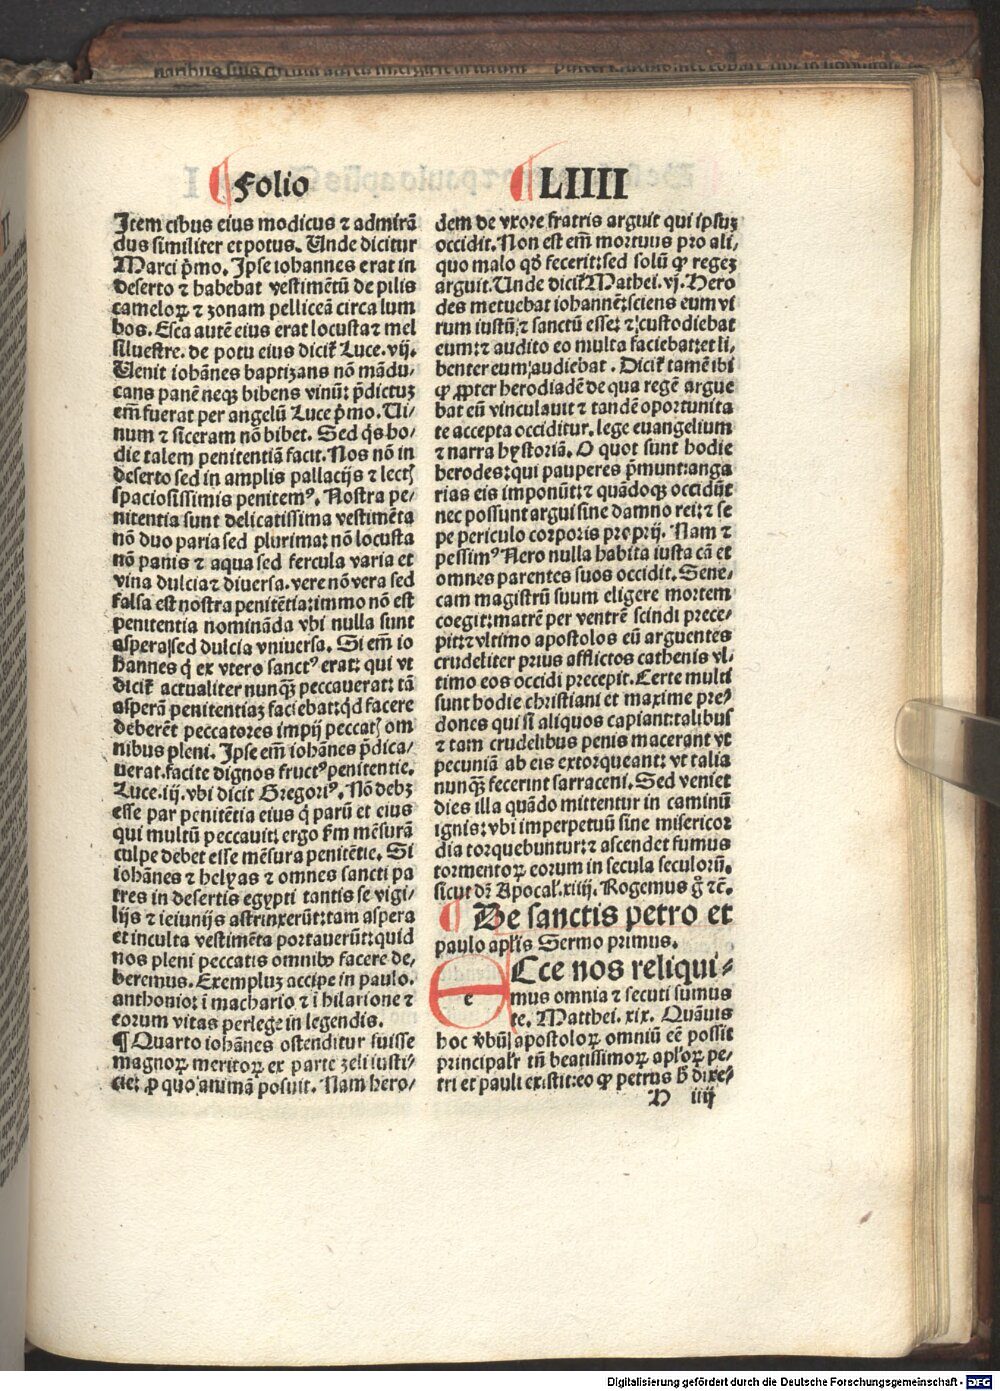 Folio LIIII
Item cibus eius modicus ⁊ admirã
dus similiter et potus. Unde dicitur
Marci p̃mo. Ipse iohannes erat in
deserto ⁊ habebat vestimẽtũ de pilis
cameloꝝ ⁊ zonam pelliceã circa lum
bos. Esca autẽ eius erat locusta ⁊ mel
siluestre. de potu eius dicit̃ Luce. vij.
Uenit iohãnes baptizans nõ mãdu/
cans panẽ neqꝫ bibens vinũ: p̃dictuꝫ
em̃ fuerat per angelũ Luce p̃mo. Ui/
num ⁊ siceram nõ bibet. Sed q̇s ho/
die talem penitentiã facit. Nos nõ in
deserto sed in amplis pallacijs ⁊ lectꝭ
spaciosissimis penitemꝰ. Nostra pe/
nitentia sunt delicatissima vestimẽta
nõ duo paria sed plurima: nõ locusta
nõ panis ⁊ aqua sed fercula varia et
vina dulcia ⁊ diuersa. vere nõ vera sed
falsa est nostra penitẽtia: immo nõ est
penitentia nominãda vbi nulla sunt
aspera sed dulcia vniuersa. Si em̃ io
hannes q̇ ex vtero sanctꝰ erat: qui vt
dicit̃ actualiter nunqꝫ̃ peccauerat: tã
asperã penitentiaꝫ faciebat: qd̃ facere
deberẽt peccatores impij peccatꝭ om
nibus pleni. Ipse em̃ iohãnes p̃dica/
uerat. facite dignos fructꝰ penitentie.
Luce. iij. vbi dicit Gregoriꝰ. Nõ debꝫ
esse par penitẽtia eius q̇ parũ et eius
qui multũ peccauit: ergo f̃m mẽsurã
culpe debet esse mẽsura penitẽtie. Si
iohãnes ⁊ helyas ⁊ omnes sancti pa
tres in desertis egypti tantis se vigi/
lijs ⁊ ieiunijs astrinxerũt: tam aspera
et inculta vestimẽta portauerũt: quid
nos pleni peccatis omnibꝰ facere de/
beremus. Exempluꝫ accipe in paulo.
anthonio: ĩ machario ⁊ ĩ hilarione ⁊
eorum vitas perlege in legendis.
¶ Quarto iohãnes ostenditur fuisse
magnoꝝ meritoꝝ ex parte zeli iusti/
cie: ꝓ quo animã posuit. Nam hero/
dem de vxore fratris arguit qui ipsuꝫ
occidit. Non est em̃ mortuus pro ali/
quo malo qd̃ fecerit: sed solũ ꝙ regeꝫ
arguit. Unde dicit̃ Mathei. vj. Hero
des metuebat iohannẽ: sciens eum vi
rum iustũ ⁊ sanctũ esse: ⁊ custodiebat
eum: ⁊ audito eo multa faciebat: et li/
benter eum audiebat. Dicit̃ tamẽ ibi
ꝙ ꝓpter herodiadẽ de qua regẽ argue
bat eũ vinculauit ⁊ tandẽ oportunita
te accepta occiditur. lege euangelium
⁊ narra hystoriã. O quot sunt hodie
herodes: qui pauperes p̃munt: anga
rias eis imponũt: ⁊ quãdoqꝫ occidũt
nec possunt argui sine damno rei: ⁊ se
pe periculo corporis proprij. Nam ⁊
pessimꝰ Nero nulla habita iusta cã et
omnes parentes suos occidit. Sene/
cam magistrũ suum eligere mortem
coegit: matrẽ per ventrẽ scindi prece/
pit: ⁊ vltimo apostolos eũ arguentes
crudeliter prius afflictos cathenis vl/
timo eos occidi precepit. Certe multi
sunt hodie christiani et maxime pre/
dones qui si aliquos capiant: talibus
⁊ tam crudelibus penis macerant vt
pecuniã ab eis extorqueant: vt talia
nunqꝫ̃ fecerint sarraceni. Sed veniet
dies illa quãdo mittentur in caminũ
ignis: vbi imperpetuũ sine misericor
dia torquebuntur: ⁊ ascendet fumus
tormentoꝝ eorum in secula seculorũ.
sicut dꝫ Apocal. xiiij. Rogemus g̊ ⁊c̃.
De sanctis petro et
paulo aplĩs Sermo primus.
Ecce nos reliqui/
mus omnia ⁊ secuti sumus
te. Matthei. xix. Quãuis
hoc v̉bũ apostoloꝝ omniũ eẽ possit
principalr̃ tñ beatissimoꝝ apl̃oꝝ pe/
tri et pauli existit: eo ꝙ petrus h̃ dixe/
H iiij
Digitalisierung gefördert durch die Deutsche Forschungsgemeinschaft - DFG